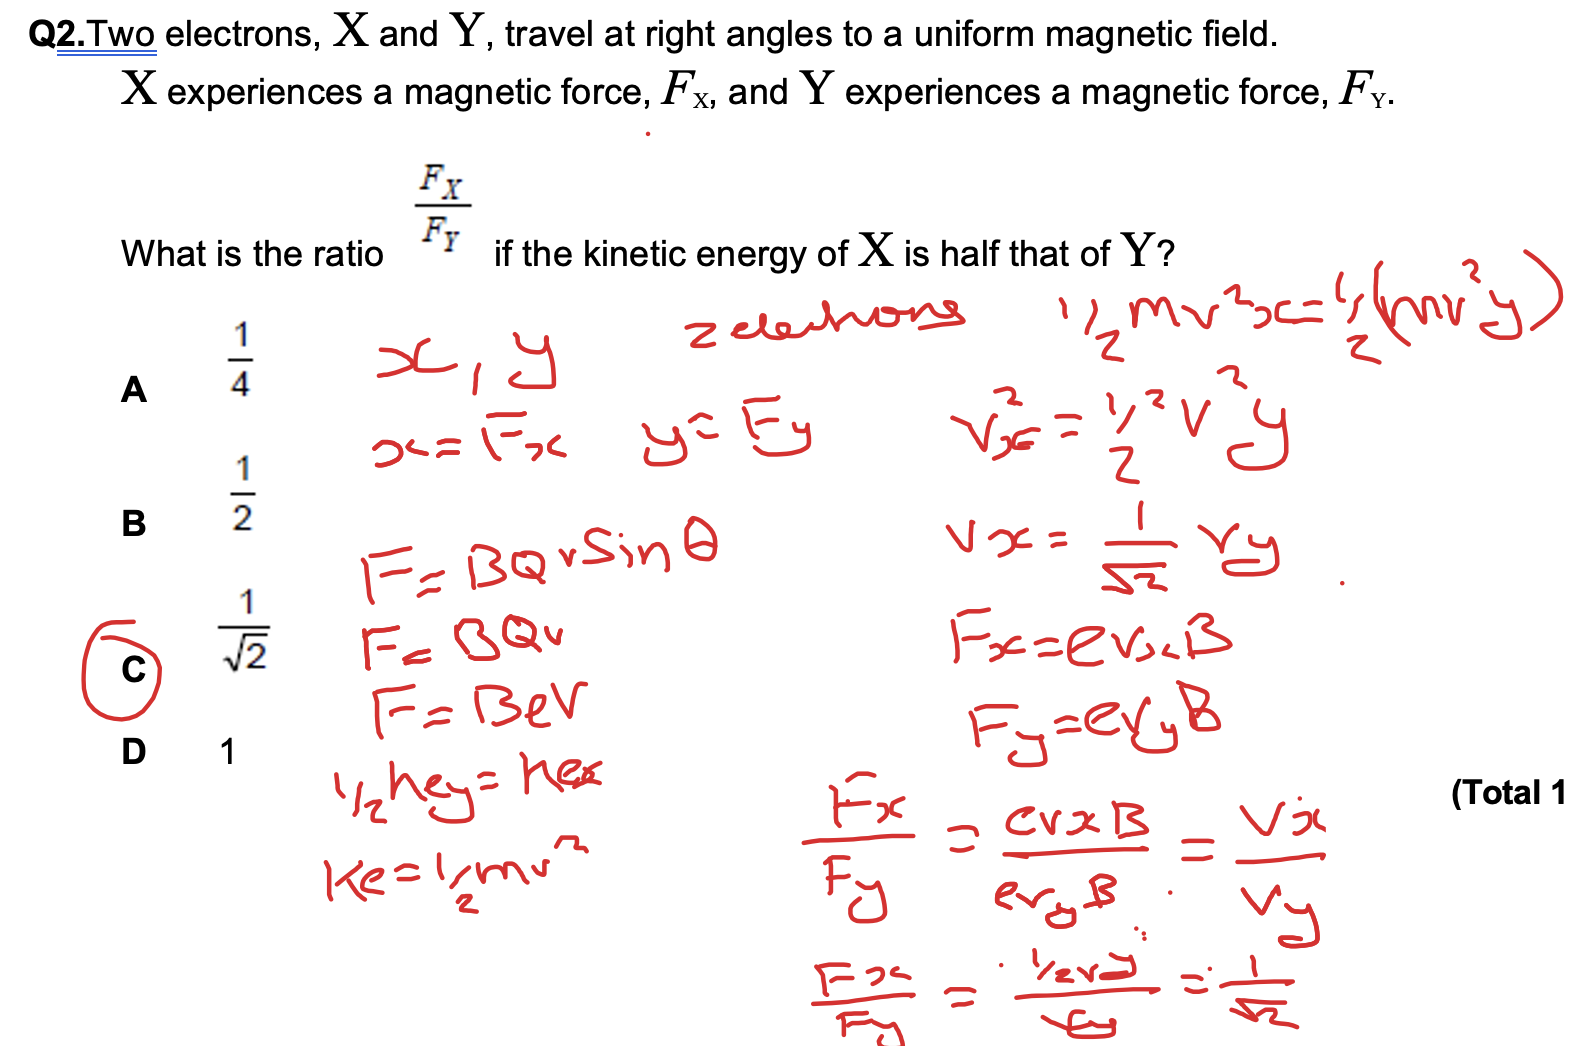 Q2.Two electrons, X and Y, travel at right angles to a uniform magnetic field.
X experiences a magnetic force, F_X, and Y experiences a magnetic force, F_Y.
What is the ratio F_X/F_Y if the kinetic energy of X is half that of Y?
A 1/4
B 1/2
C 1/√2
D 1
(Total 1
x, y
x = Fx y = Fy
F = BQv Sin θ
F = BQv
F = Bev
1/2 key = kex
Ke = 1/2 mv²
2 electrons
1/2 mv²x = 1/2 (mv²y)
v²x = 1/2 ² v²y
vx = 1/√2 vy
Fx = evxB
Fy = evyB
Fx/Fy = evxB/evyB = vx/vy
Fx/Fy = 1/2vy/vy = 1/√2